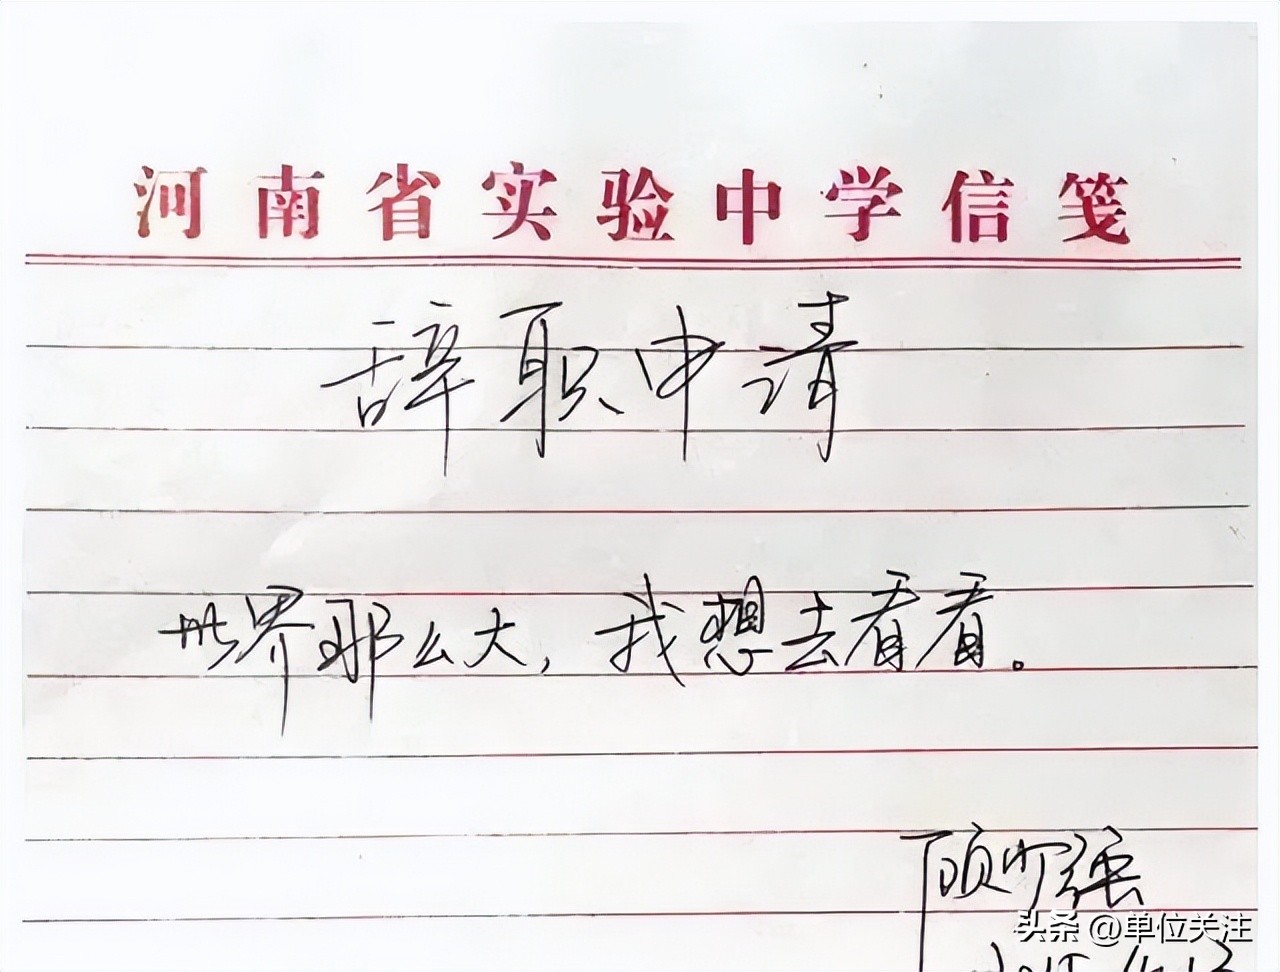 河南省实验中学信笺
辞职申请
世界那么大，我想去看看。
顾少强
头条 @单位关注